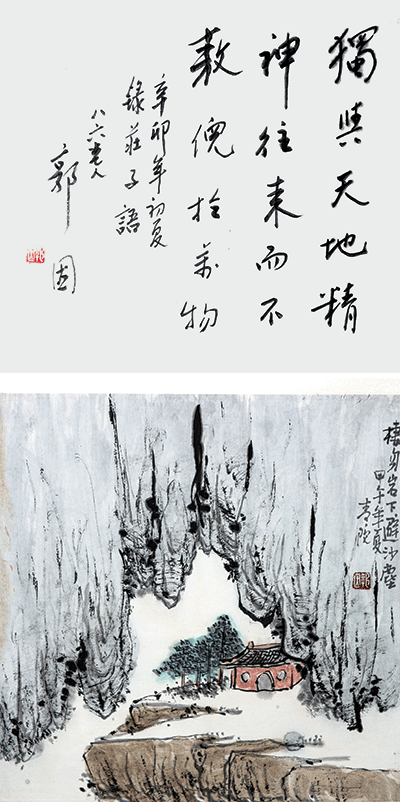 獨與天地精
神往来而不
敖倪於萬物
辛卯年初夏
錄莊子語
八六老人
郭因
棲身岩下避沙塵
甲午年夏